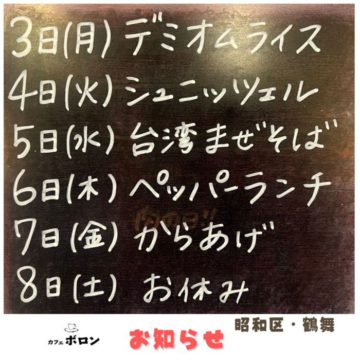 3日(月) デミオムライス
4日(火) シュニッツェル
5日(水) 台湾まぜそば
6日(木) ペッパーランチ
7日(金) からあげ
8日(土) お休み
昭和区・鶴舞
カフェ ボロン お知らせ